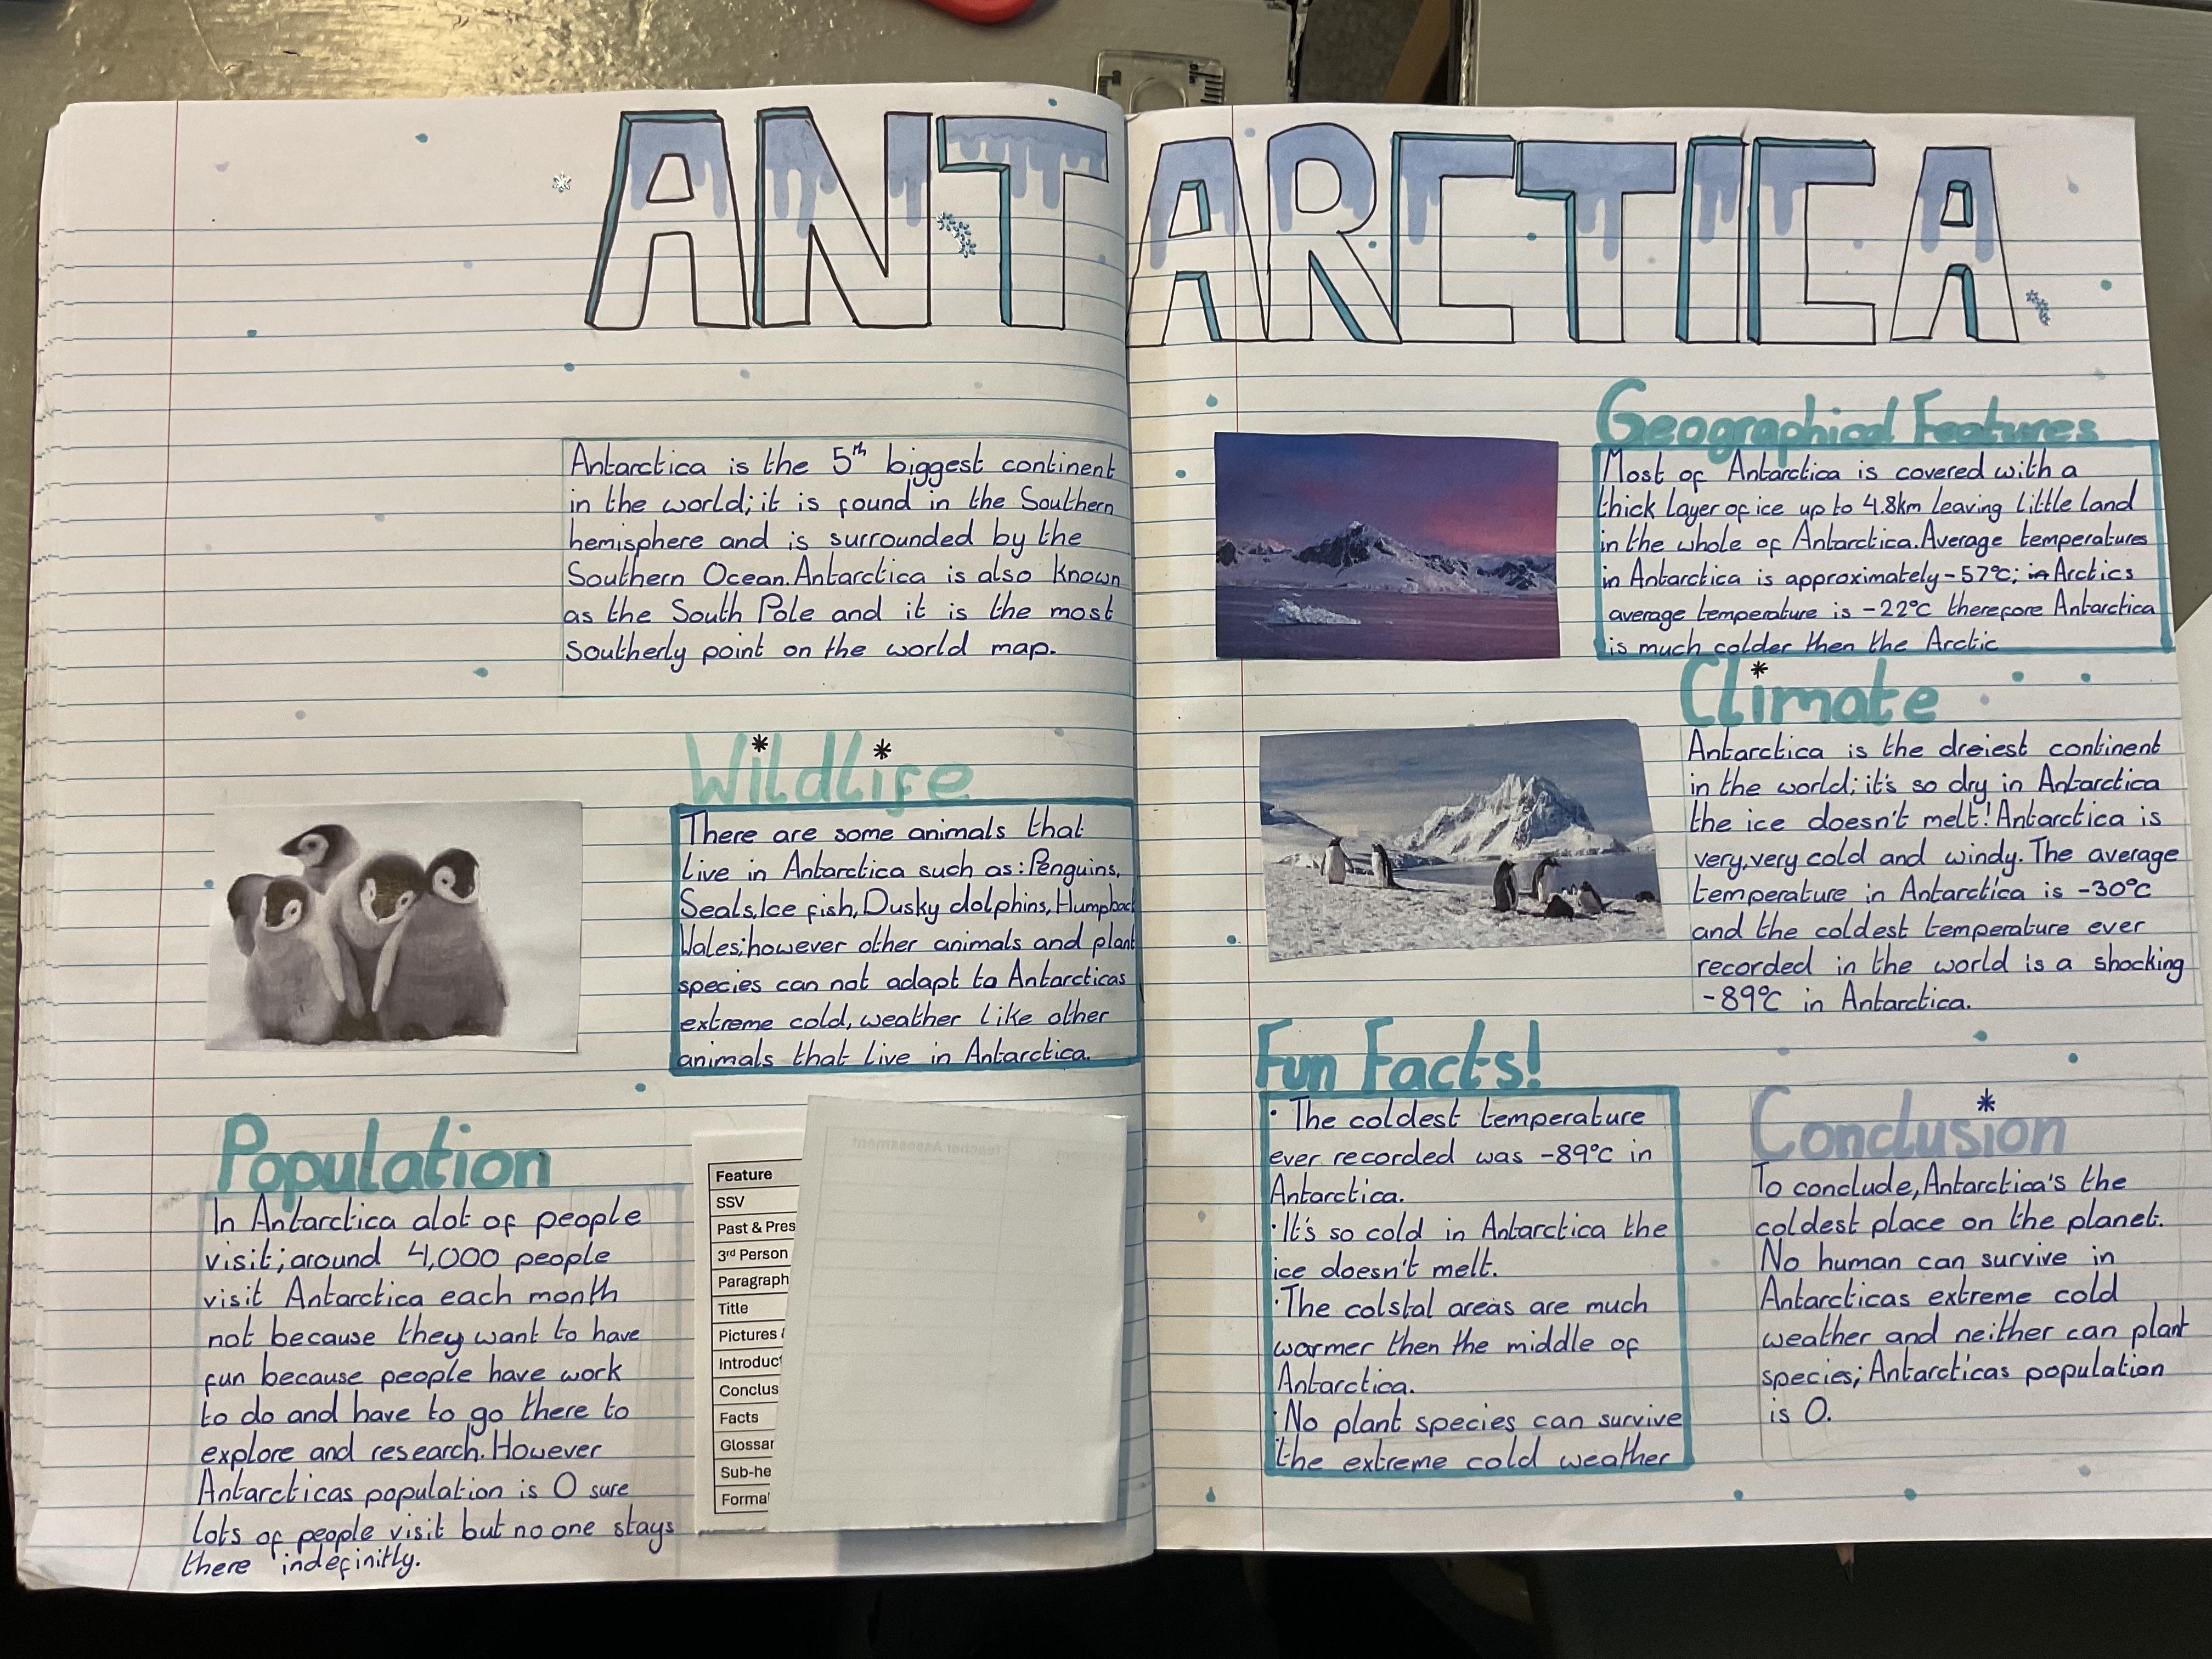 ANTARCTICA
Antarctica is the 5th biggest continent
in the world; it is found in the Southern
hemisphere and is surrounded by the
Southern Ocean. Antarctica is also known
as the South Pole and it is the most
Southerly point on the world map.
Wildlife
There are some animals that
live in Antarctica such as: Penguins,
Seals, Ice fish, Dusky dolphins, Humpback
Wales; however other animals and plant
species can not adapt to Antarcticas
extreme cold, weather like other
animals that live in Antarctica.
Population
In Antarctica alot of people
visit; around 4,000 people
visit Antarctica each month
not because they want to have
fun because people have work
to do and have to go there to
explore and research. However
Antarcticas population is 0 sure
lots of people visit but no one stays
there indefinitly.
Feature
SSV
Past & Pres
3rd Person
Paragraph
Title
Pictures
Introduc
Conclus
Facts
Glossar
Sub-he
Formal
Teacher Assessment
Geographical Features
Most of Antarctica is covered with a
thick layer of ice up to 4.8km leaving little land
in the whole of Antarctica. Average temperatures
in Antarctica is approximately -57°C; in Arctics
average temperature is -22°C therefore Antarctica
is much colder then the Arctic
Climate
Antarctica is the dreiest continent
in the world; it's so dry in Antarctica
the ice doesn't melt! Antarctica is
very, very cold and windy. The average
temperature in Antarctica is -30°C
and the coldest temperature ever
recorded in the world is a shocking
-89°C in Antarctica.
Fun Facts!
· The coldest temperature
ever recorded was -89°C in
Antarctica.
· It's so cold in Antarctica the
ice doesn't melt.
· The colstal areas are much
warmer then the middle of
Antarctica.
· No plant species can survive
the extreme cold weather
Conclusion
To conclude, Antarctica's the
coldest place on the planet.
No human can survive in
Antarcticas extreme cold
weather and neither can plant
species; Antarcticas population
is 0.